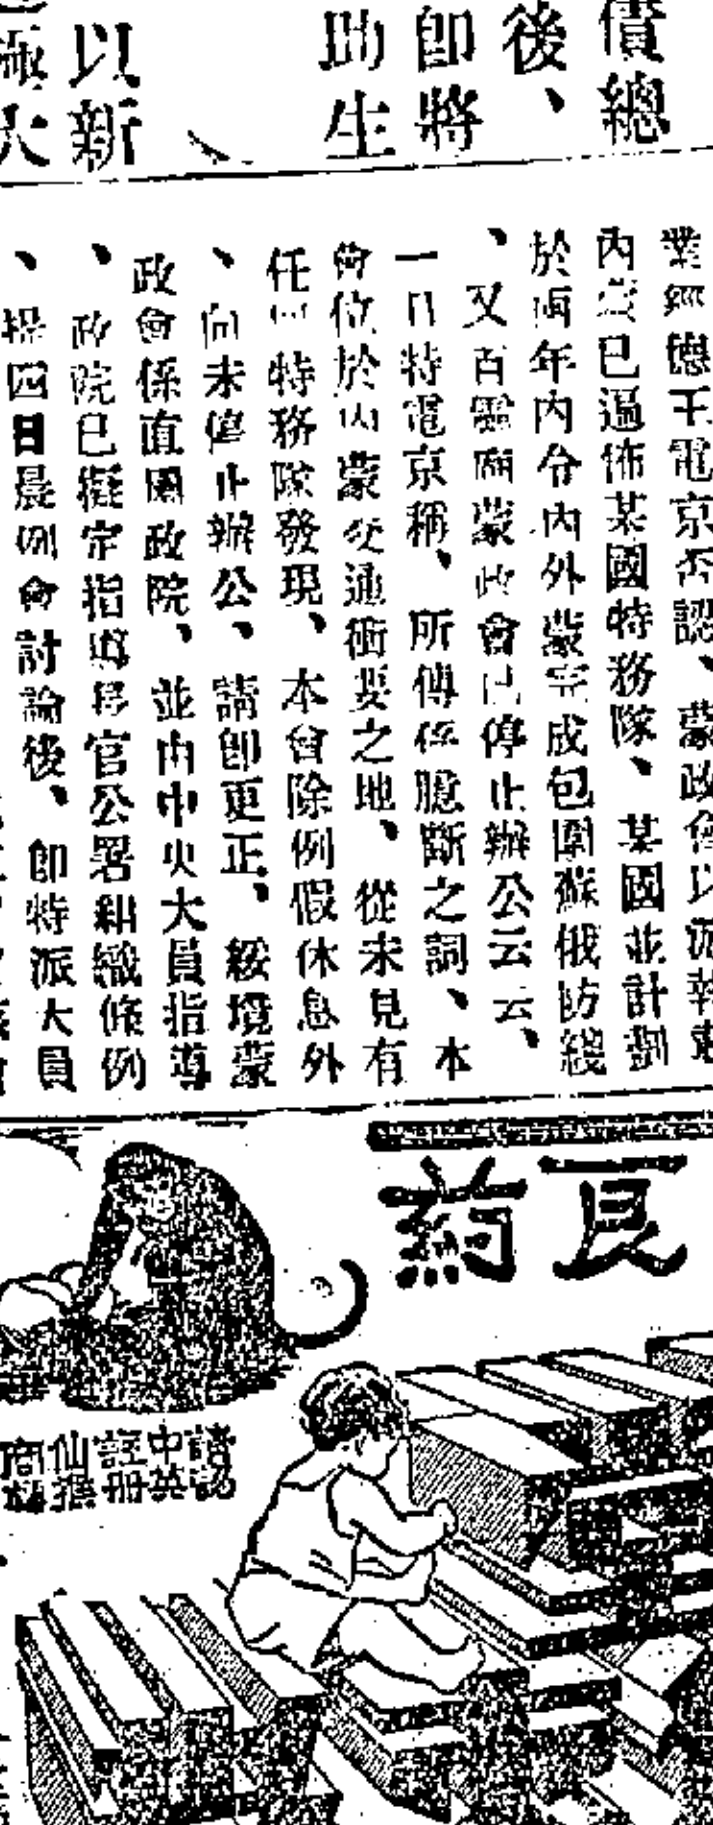 償總
後、
即將
助生
以新
極大
業經德王電京否認、蒙政會以派幹
內蒙已遍佈某國特務隊、某國並計劃
於兩年內令內外蒙完成包圍蘇俄防綫
、又百靈廟蒙政會已停止辦公云云、
一日特電京稱、所傳係臆斷之詞、本
會位於內蒙交通衝要之地、從未見有
任何特務隊發現、本會除例假休息外
、向未停止辦公、請即更正、綏境蒙
政會係直屬政院、並由中央大員指導
、政院已擬定指導長官公署組織條例
、提四日晨例會討論後、即特派大員
良葯
請認
中英
註冊
仙猴
商標